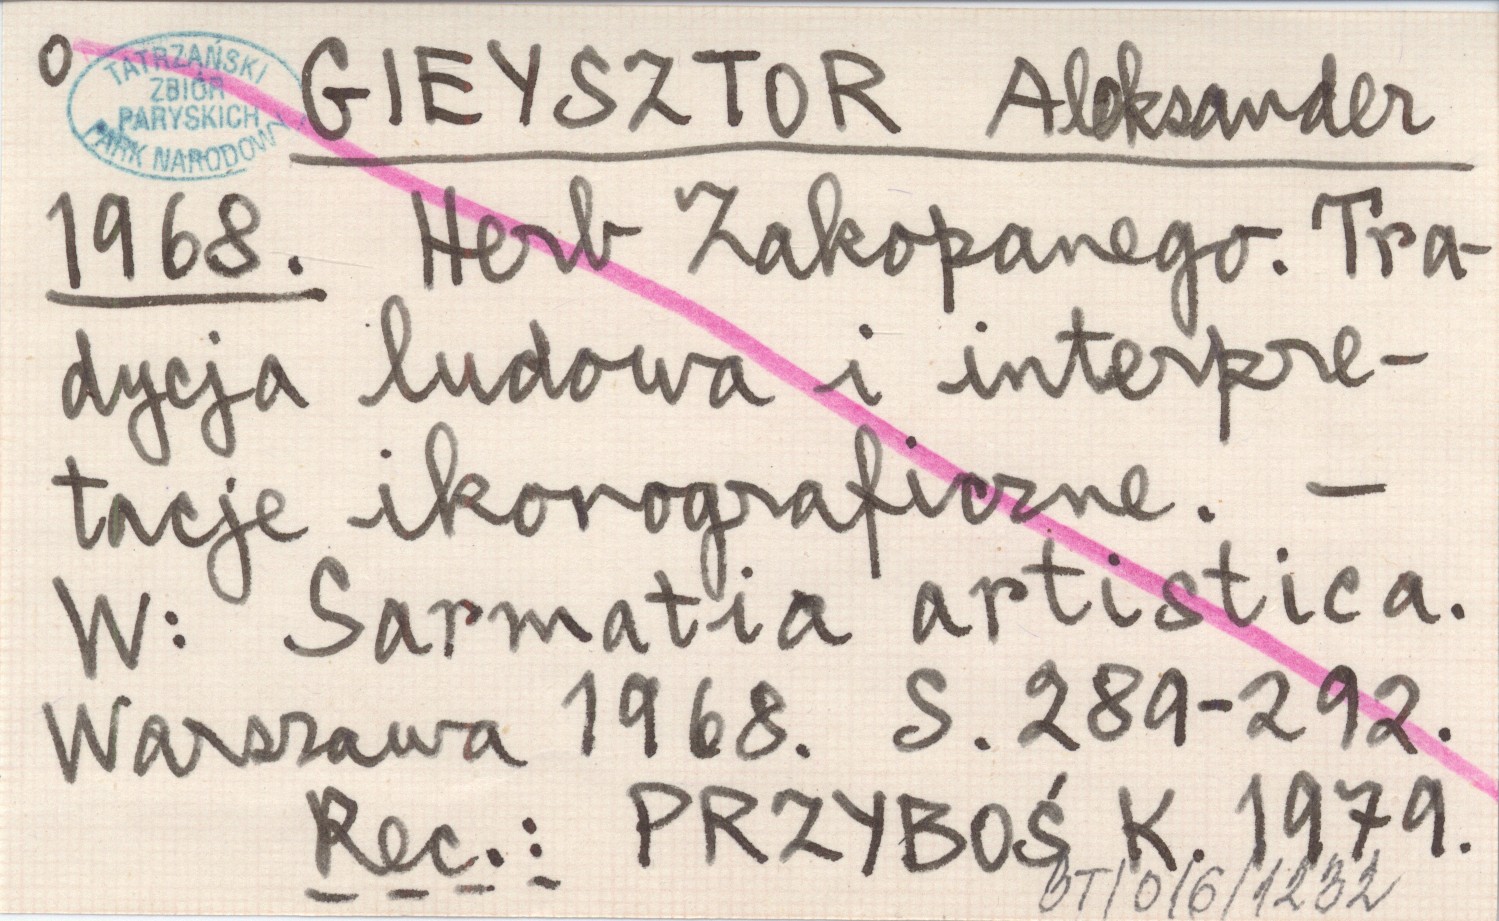 o GIEYSZTOR Aleksander
TATRZAŃSKI
ZBIÓR
PARYSKICH
PARK NARODOWY
1968. Herb Zakopanego. Tra-
dycja ludowa i interpre-
tacje ikonograficzne. —
W: Sarmatia artistica.
Warszawa 1968. S. 289-292.
Rec.: PRZYBOŚ K. 1979.
BT/O/6/1232